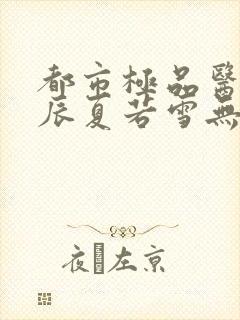 都市極品醫
辰夏若雪無
夜�左京